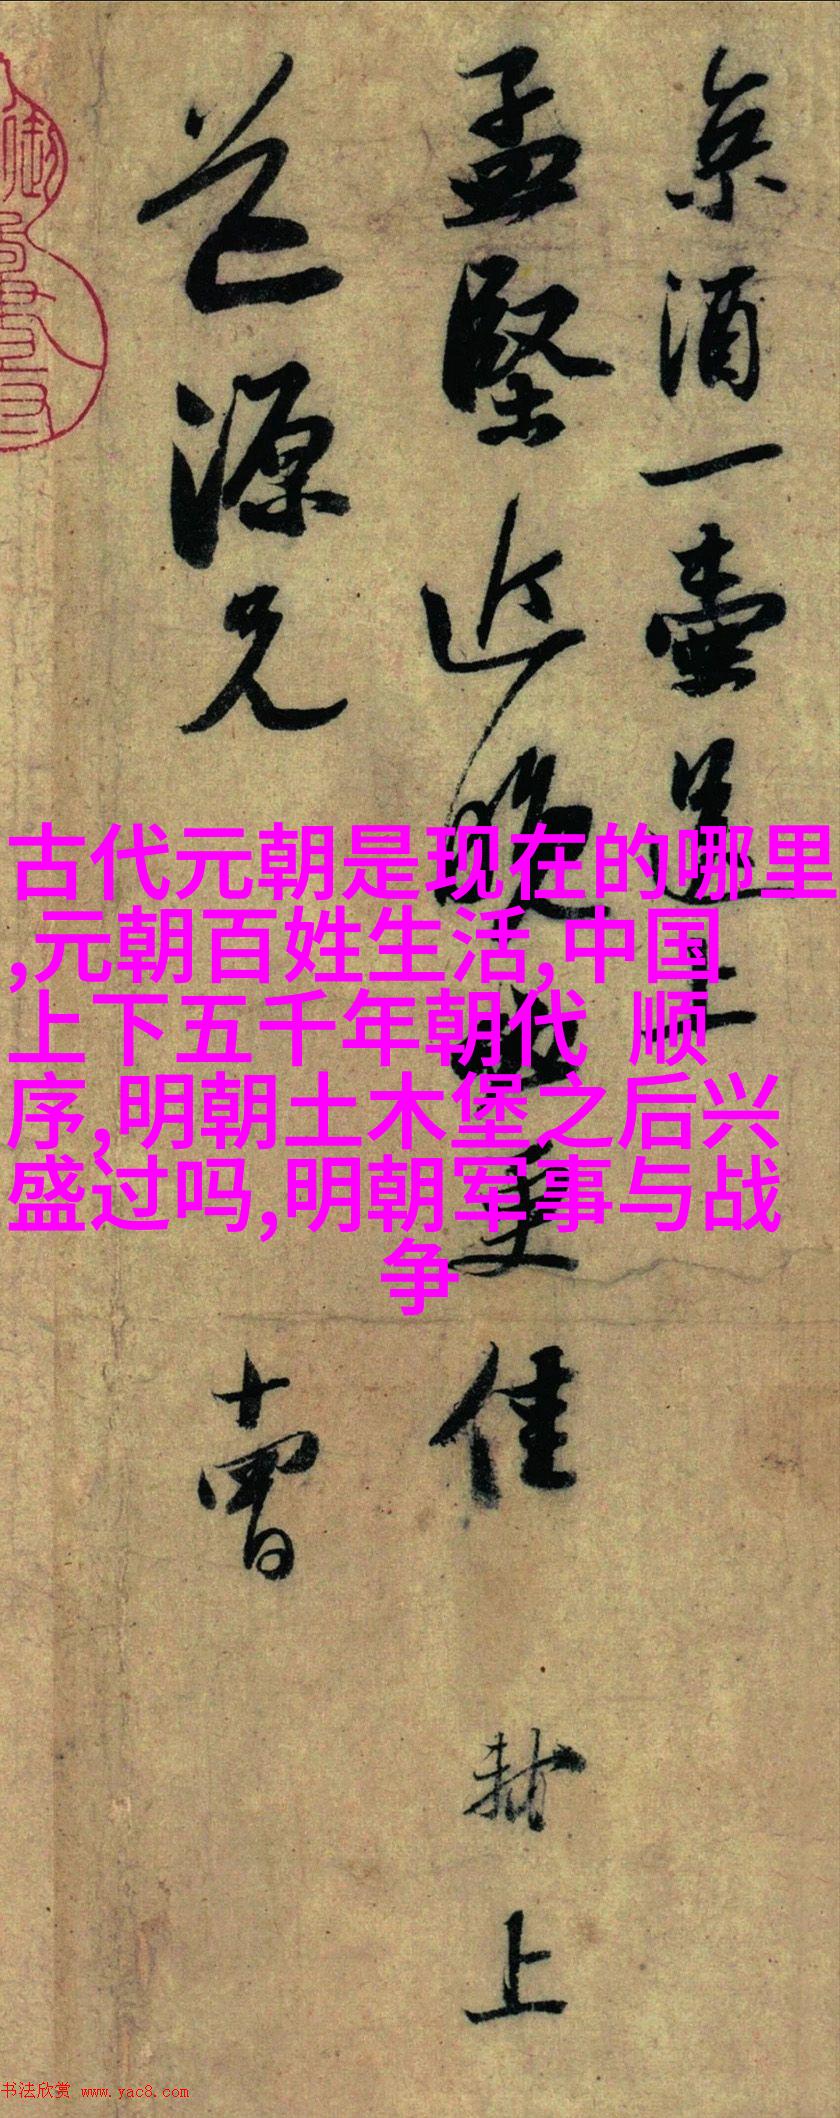 京酒一壷送上
孟堅近晚更佳 黻上
道源兄 十
古代元朝是现在的哪里
,元朝百姓生活,中国
上下五千年朝代 顺
序,明朝土木堡之后兴
盛过吗,明朝军事与战
争
书法欣赏 www.yac8.com